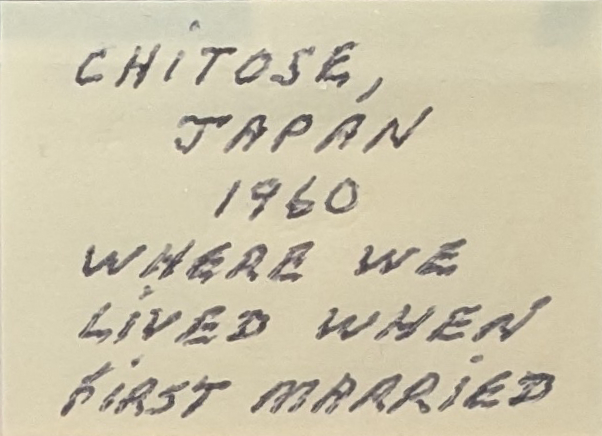 CHiTOSE,
JAPAN
1960
WHERE WE
LiVED WHEN
FiRST MARRiED